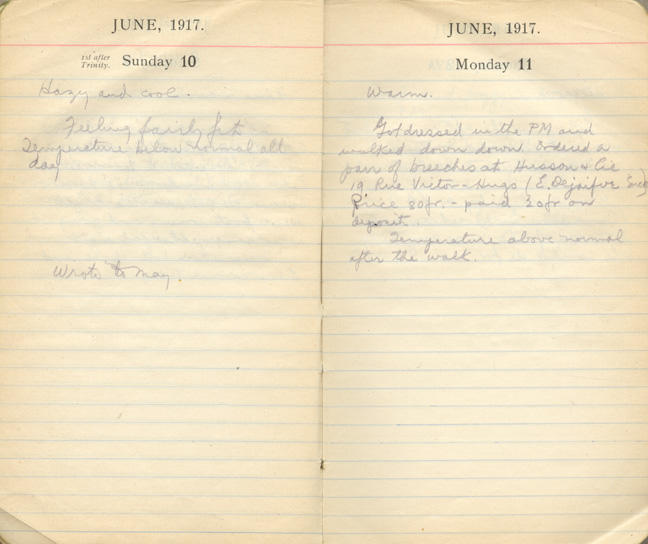 JUNE, 1917.
1st after
Trinity.
Sunday 10
Hazy and cool.
Feeling fairly fit
Temperature below normal all
day
Wrote to May.
JUNE, 1917.
Monday 11
Warm.
Got dressed in the PM and
walked down down. Ordered a
pair of breeches at Husson & Cie
19 Rue Victor-Hugo (E. Dejaifve
Price 80fr. - paid 30fr on
deposit.
Temperature above normal
after the walk.